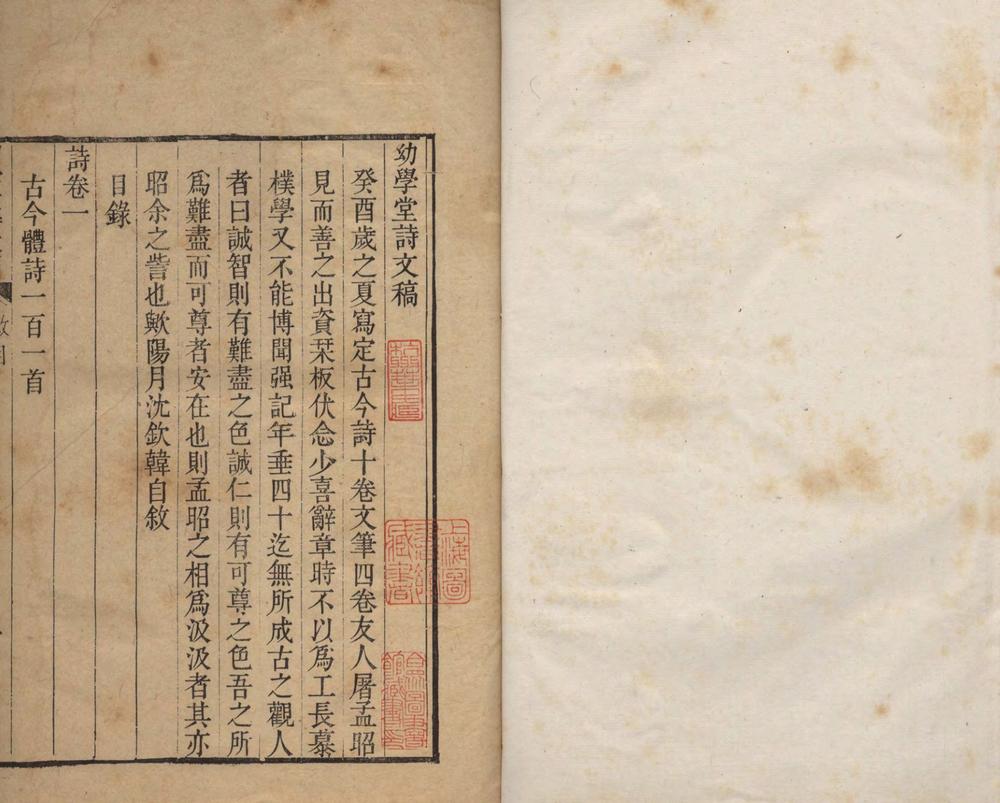 幼學堂詩文稿
癸酉歲之夏寫定古今詩十卷文筆四卷友人屠孟昭
見而善之出資栞板伏念少喜辭章時不以爲工長慕
樸學又不能博聞强記年垂四十迄無所成古之觀人
者曰誠智則有難盡之色誠仁則有可尊之色吾之所
爲難盡而可尊者安在也則孟昭之相爲汲汲者其亦
昭余之訾也歟陽月沈欽韓自敘
目錄
詩卷一
古今體詩一百一首